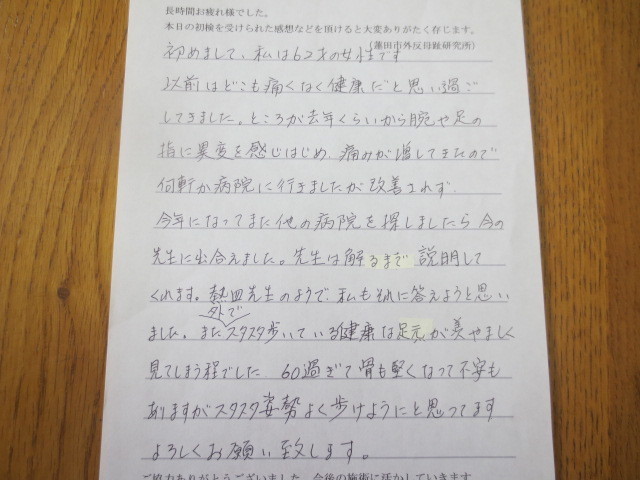 長時間お疲れ様でした。
本日の初検を受けられた感想などを頂けると大変ありがたく存じます。
(蓮田市外反母趾研究所)
初めまして、私は62才の女性です
以前はどこも痛くなく健康だと思い過ご
してきました。ところが去年くらいから腕や足の
指に異変を感じはじめ、痛みが増してきたので
何軒か病院に行きましたが改善されず、
今年になってまた他の病院を探しましたら今の
先生に出合えました。先生は解るまで説明して
くれます。熱血先生のようで、私もそれに答えようと思い
外で
ました。またスタスタ歩いている健康な足元が羨やましく
見てしまう程でした 60過ぎて骨も堅くなって不安も
ありますがスタスタ姿勢よく歩けようにと思ってます
よろしくお願い致します。
ご協力ありがとうございました。今後の施術に活かしていきます。